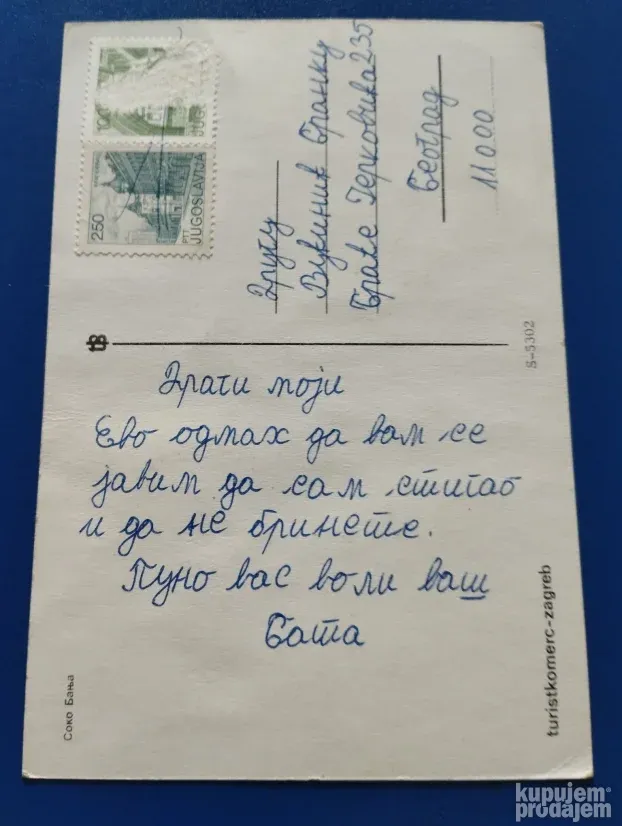 100
JUGO
2.50
PTT JUGOSLAVIJA
Другу
Вукинић Бранку
Браће Јерковића 235
Београд
11000
S-5302
Драги моји
Ево одмах да вам се
јавим да сам стигао
и да не бринете.
Пуно вас воли ваш
Бата
Соко Бања
turistkomerc-zagreb
kupujem
prodajem